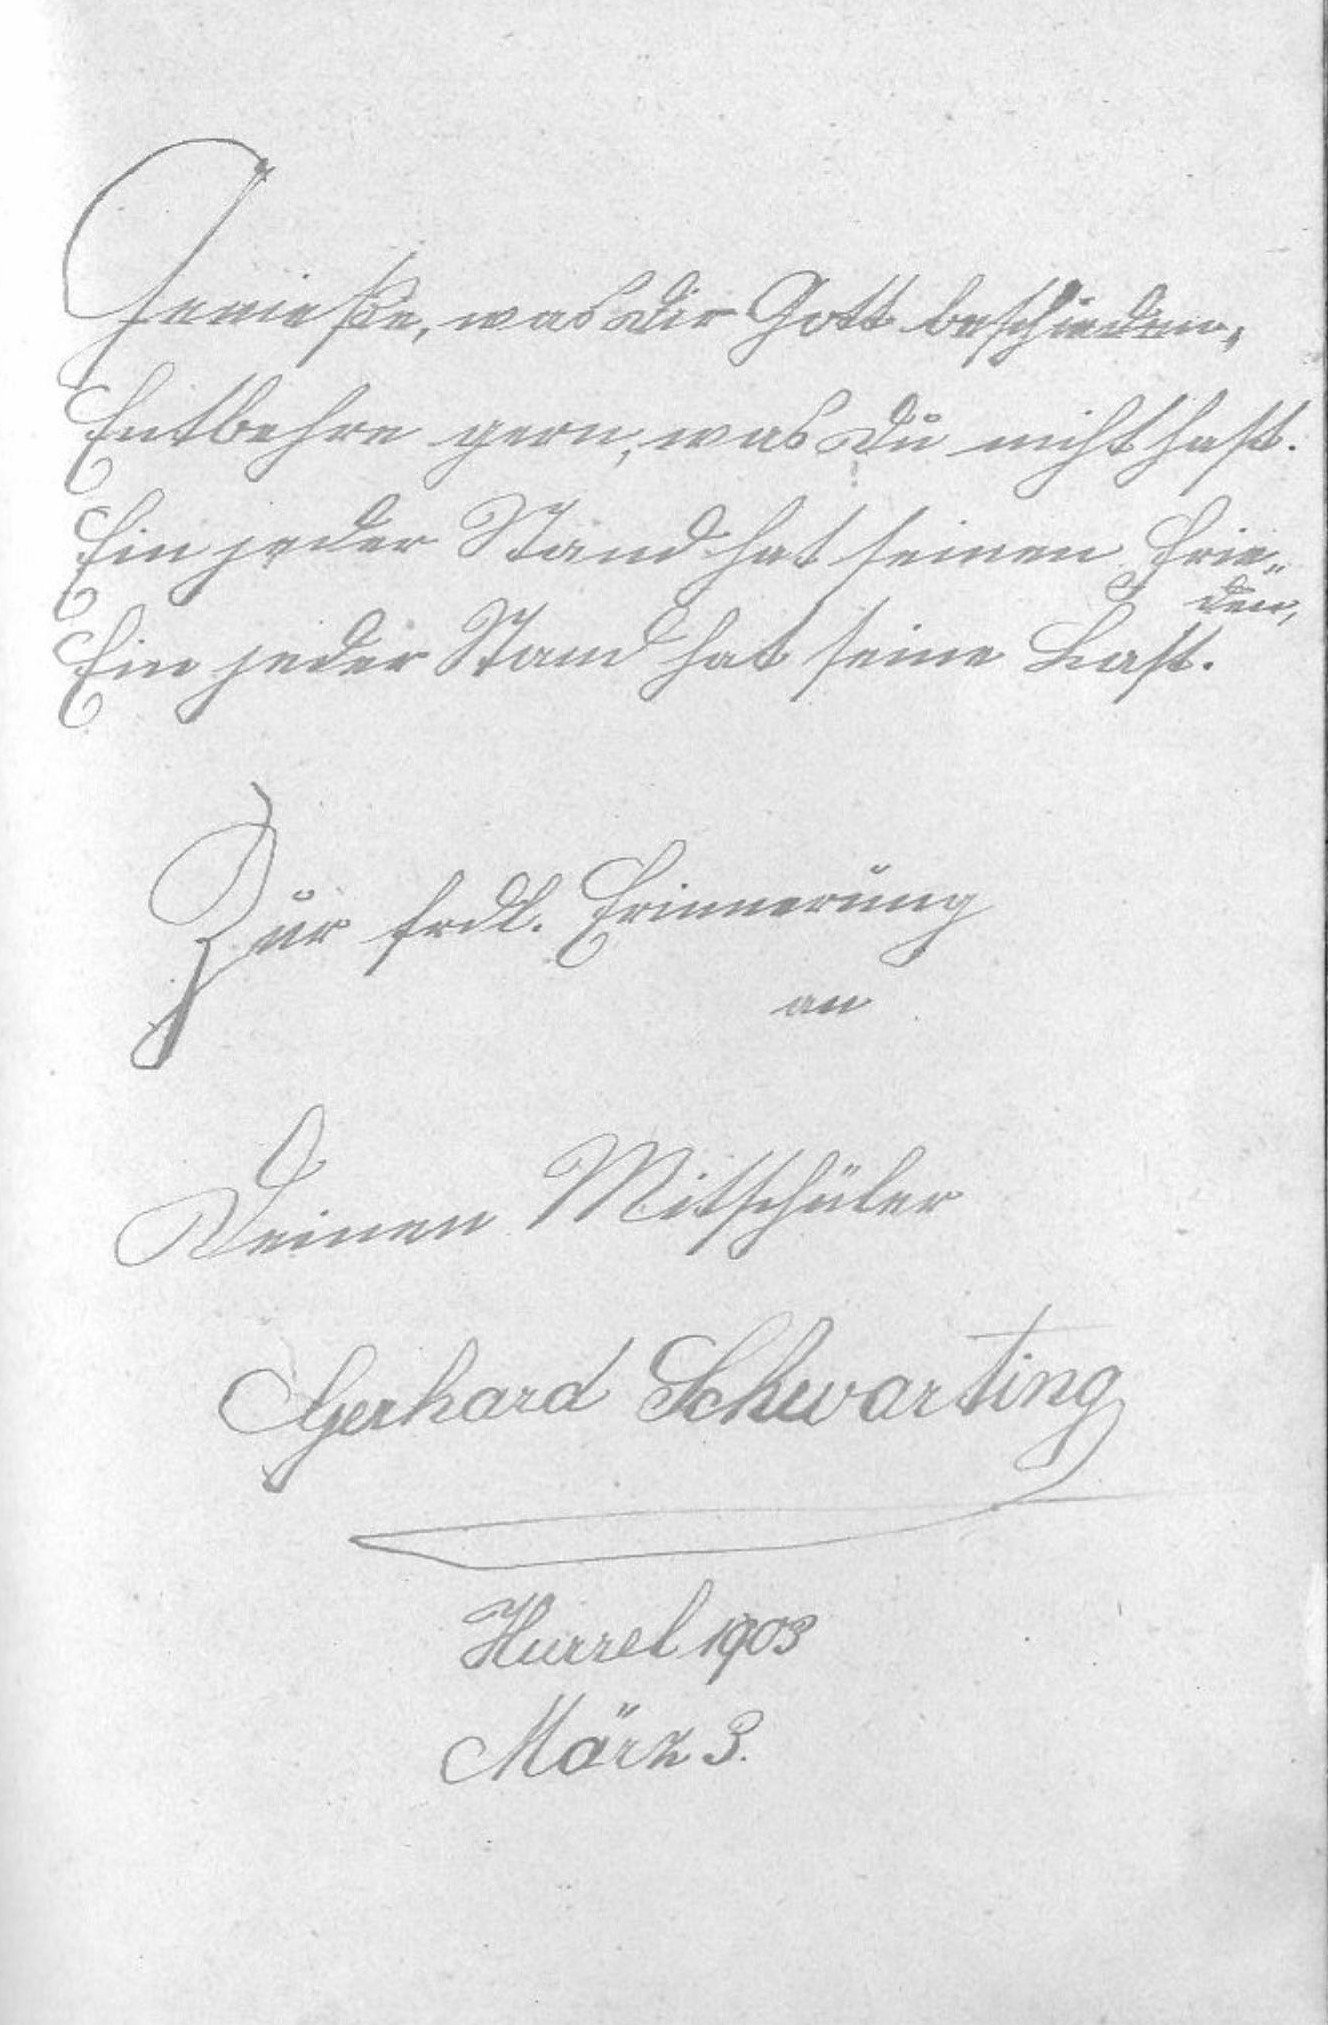 Genieße, was Dir Gott beschieden,
Entbehre gern, was Du nicht hast.
Ein jeder Stand hat seinen Frie„
den,
Ein jeder Stand hat seine Last.
Zur frdl. Erinnerung
an
Deinen Mitschüler
Gerhard Schwarting
Hurrel 1903
März 3.